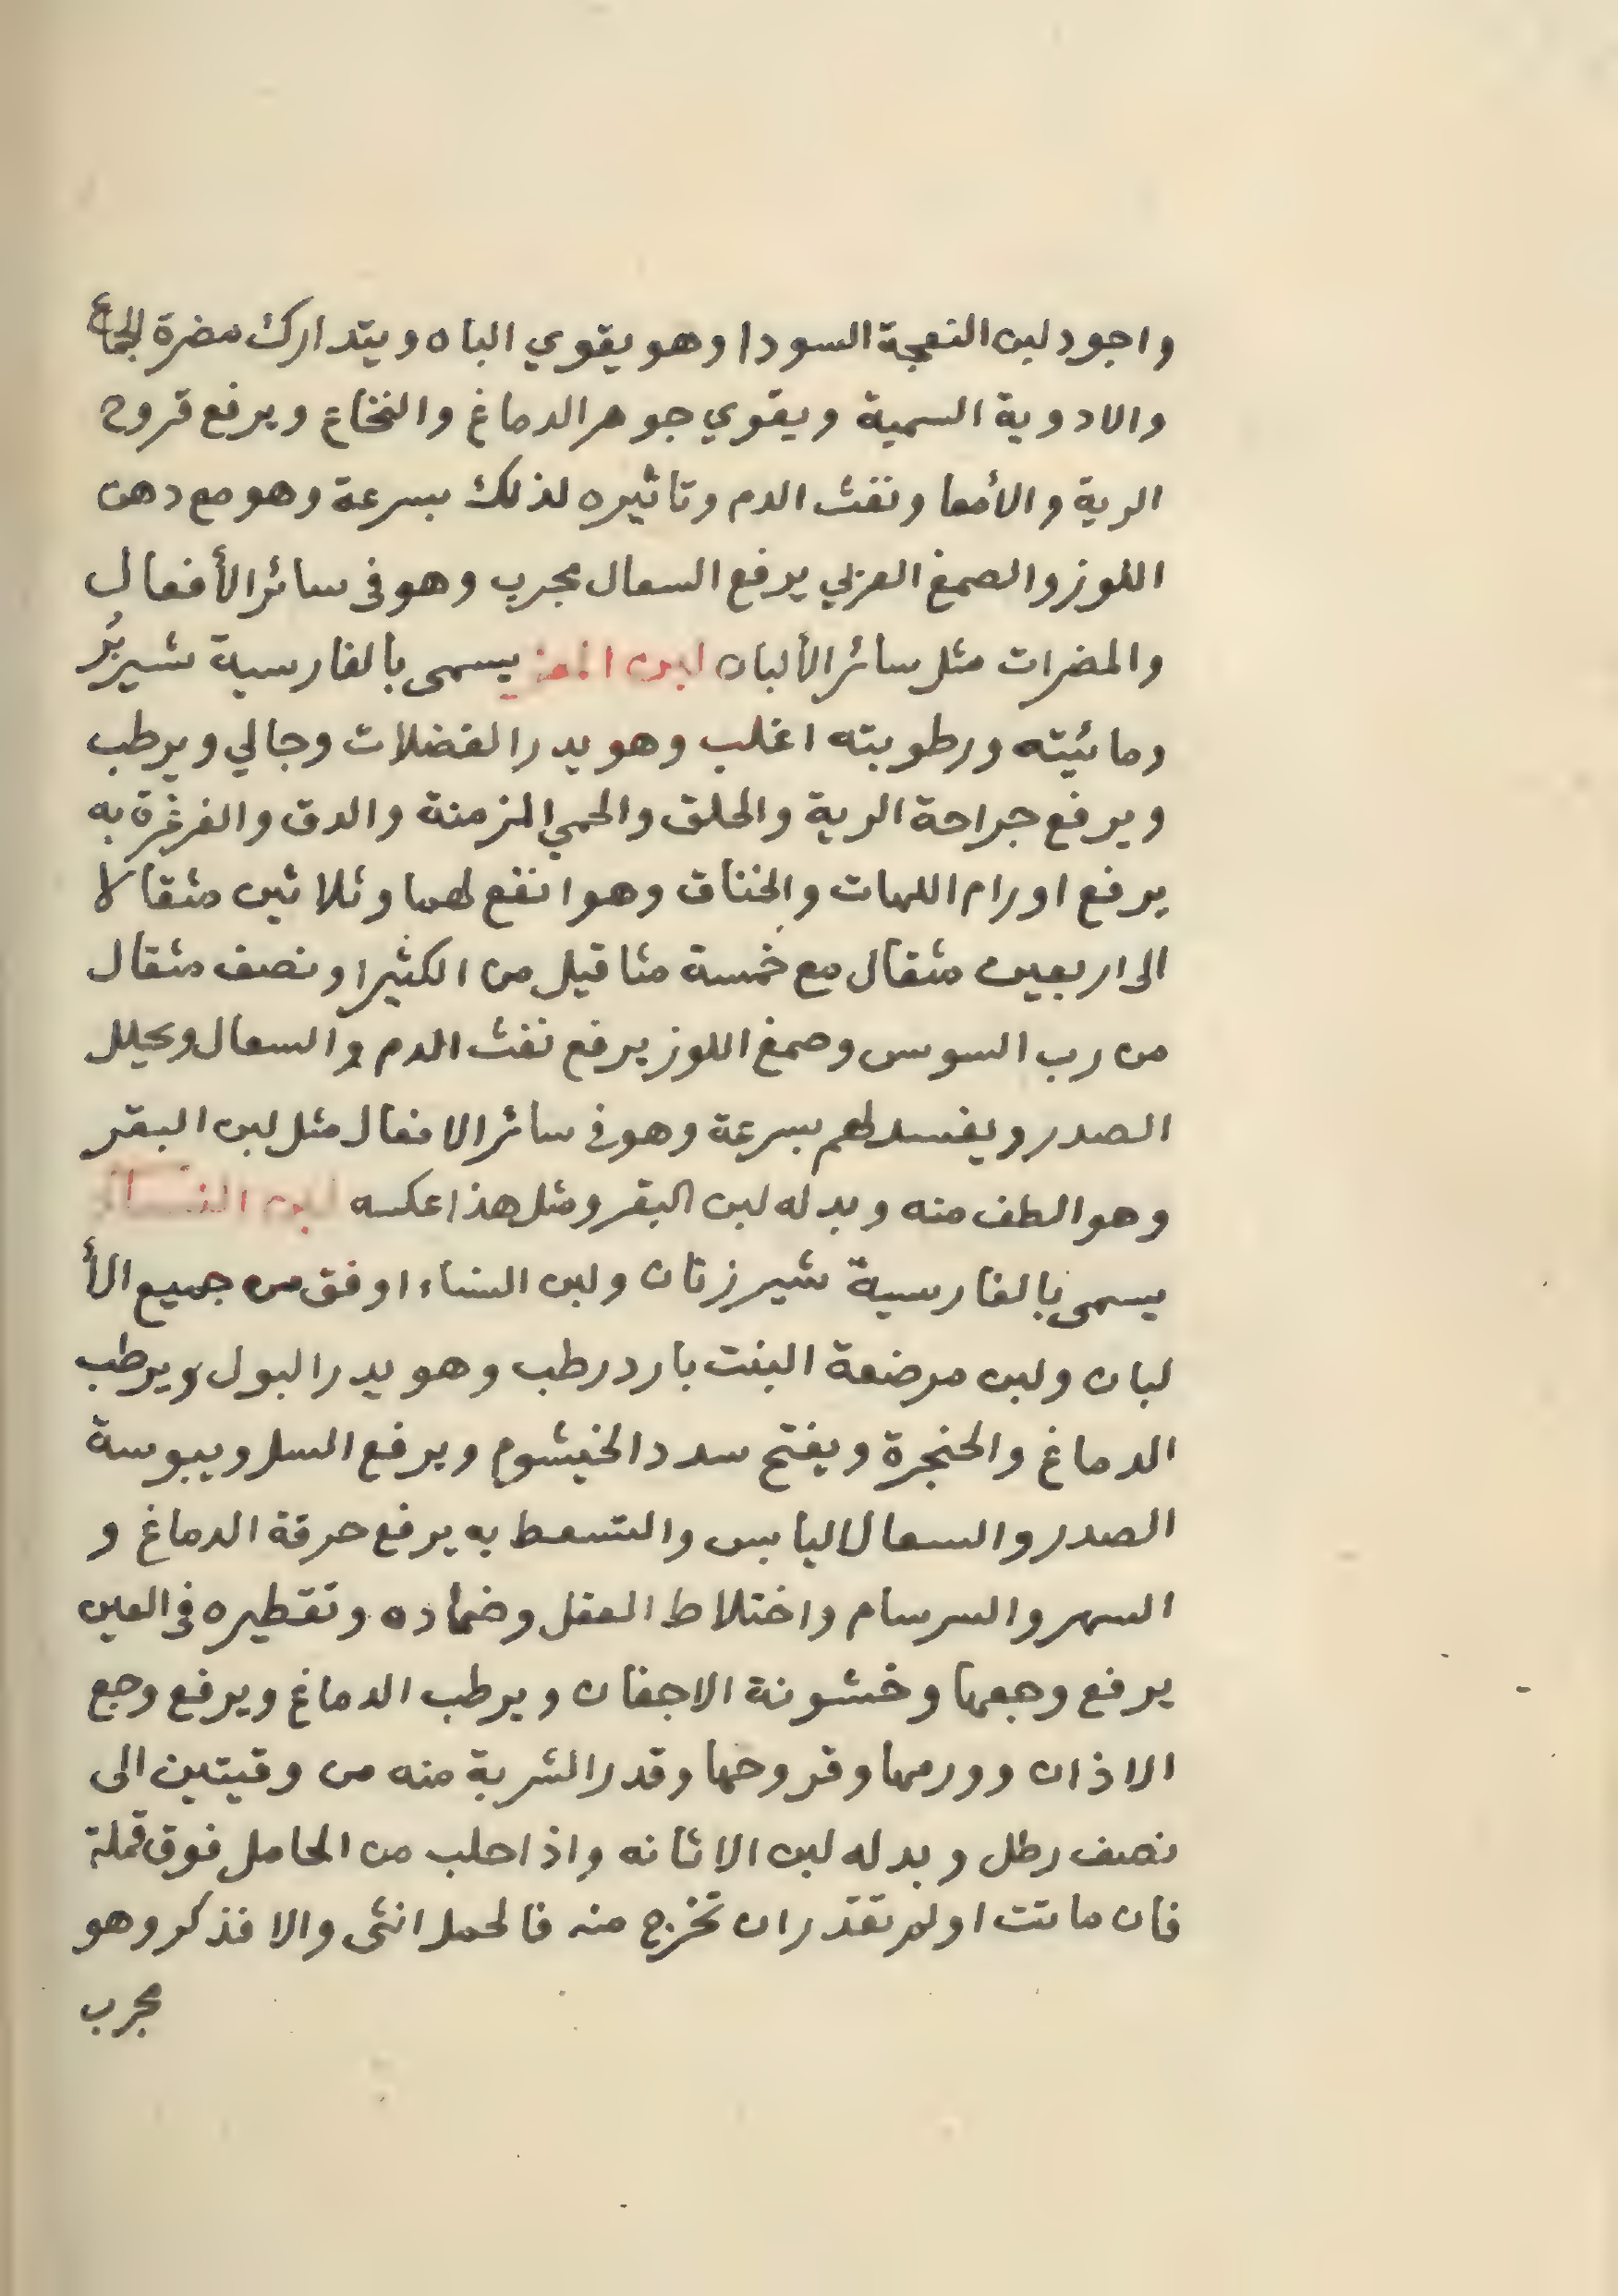 واجود لبن النعجة السودا وهو يقوي الباه ويتدارك مضرة الجماع
والادوية السمية ويقوي جوهر الدماغ والنخاع ويرفع قروح
الرية والأمعا ونفث الدم وتاثيره لذلك بسرعة وهو مع دهن
اللوز والصمغ العربي يرفع السعال مجرب وهو في سائر الأفعال
والمضرات مثل سائر الألبان لبن المعز يسمى بالفارسية شير بُز
ومائيته ورطوبته اغلب وهو يدر الفضلات وجالي ويرطب
ويرفع جراحة الرية والحلق والحمي المزمنة والدق والغرغرة به
يرفع اورام اللهات والخناق وهو انفع لهما وثلاثين مثقالا
الى اربعين مثقال مع خمسة مثاقيل من الكثيرا ونصف مثقال
من رب السوس وصمغ اللوز يرفع نفث الدم والسعال ويحلل
الصدر ويفسد لهم بسرعة وهو في سائر الافعال مثل لبن البقر
وهو الطف منه وبدله لبن البقر ومثل هذا عكسه لبن النساء
يسمى بالفارسية شير زنان ولبن النساء اوفق من جميع الأ
لبان ولبن مرضعة البنت بارد رطب وهو يدر البول ويرطب
الدماغ والحنجرة ويفتح سدد الخيشوم ويرفع السل ويبوسة
الصدر والسعال اليابس والتسعط به يرفع حرقة الدماغ و
السهر والسرسام واختلاط العقل وضماده وتقطيره في العين
يرفع وجعها وخشونة الاجفان ويرطب الدماغ ويرفع وجع
الاذان وورمها وقروحها وقدر الشربة منه من وقيتين الى
نصف رطل وبدله لبن الاتانه واذا حلب من الحامل فوق قملة
فان ماتت او لم تقدر ان تخرج منه فالحمل انثى والا فذكر وهو
مجرب